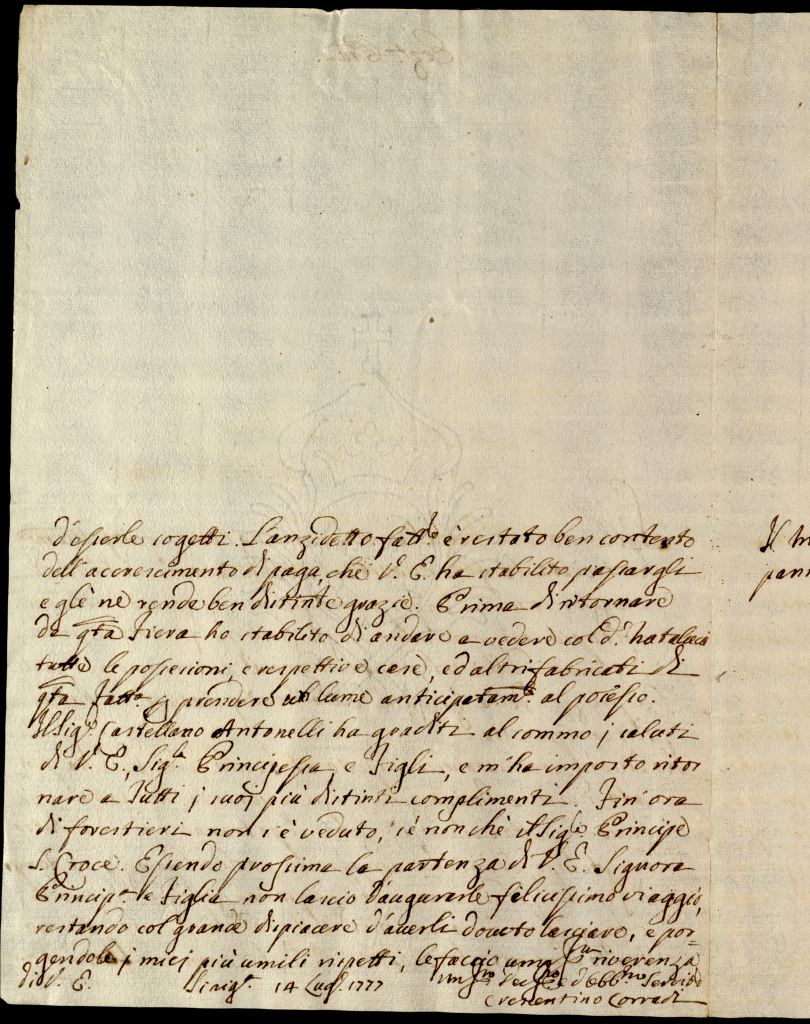 d'esserle sogetti. L'anzidetto fatt.e è restato ben contento
dell'accrescimento di paga, che V. E. ha stabilito passargli
e gle ne rende ben distinte grazie. Prima di ritornare
da qta Fiera ho stabilito di andare a vedere col d.o
tutte le possesioni, e respettive case, ed altri fabricati di
qta Fatt.a prendere lume anticipatam.e al possesso.
Il Sig.r Castellano Antonelli ha graditi al sommo i saluti
di V. E., Sig.a Principessa, e Figli, e m'ha imposto ritor
nare a Tutti i suoi più distinti complimenti. Fin'ora
di forestieri non s'è veduto, se non chè il Sig.e Principe
S. Croce. Essendo prossima la partenza di V. E. Signora
Princip.a e Figlia non lascio d'augurarle felicissimo viaggio,
restando col grande dispiacere d'averli dovuto lasciare, e por=
gendole i miei più umili rispetti, le faccio um.a riverenza
di V. E. Sinig.a 14 Lug. 1777
Crescentino Corradi
Il
pan